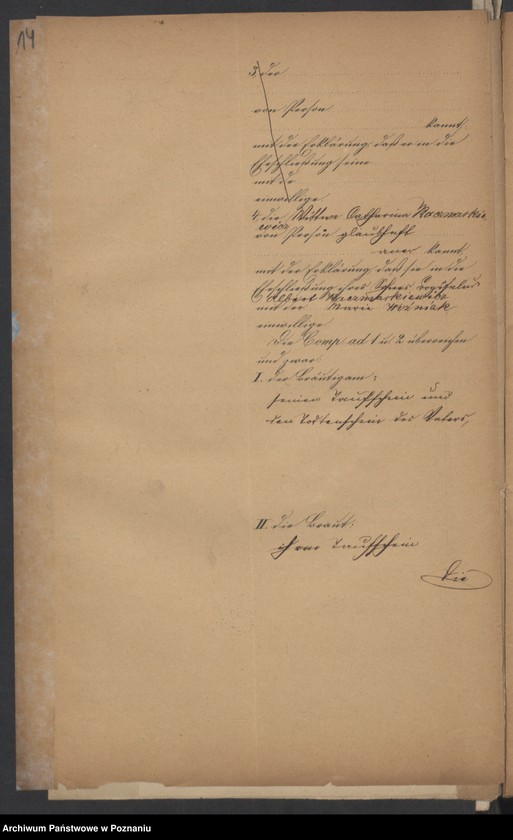 14
3, der
von Person
kannt,
mit der Erklärung, daß er in die
Eheschließung seine
mit de
einwillige
4, die Wittwe Catharina Kaczmarkie
wicz
von Person glaubhaft
aner kannt,
mit der Erklärung, daß sie in die
Eheschließung ihres Sohnes
Albert Kaczmarkiewicz
mit der Marie Woźniak
einwillige
Die Comp. ad 1 u. 2 überreichen
und zwar
I. der Bräutigam:
seinen Taufschein und
den Todtenschein des Vaters,
II. die Braut:
ihren Taufschein
Die
Archiwum Państwowe w Poznaniu